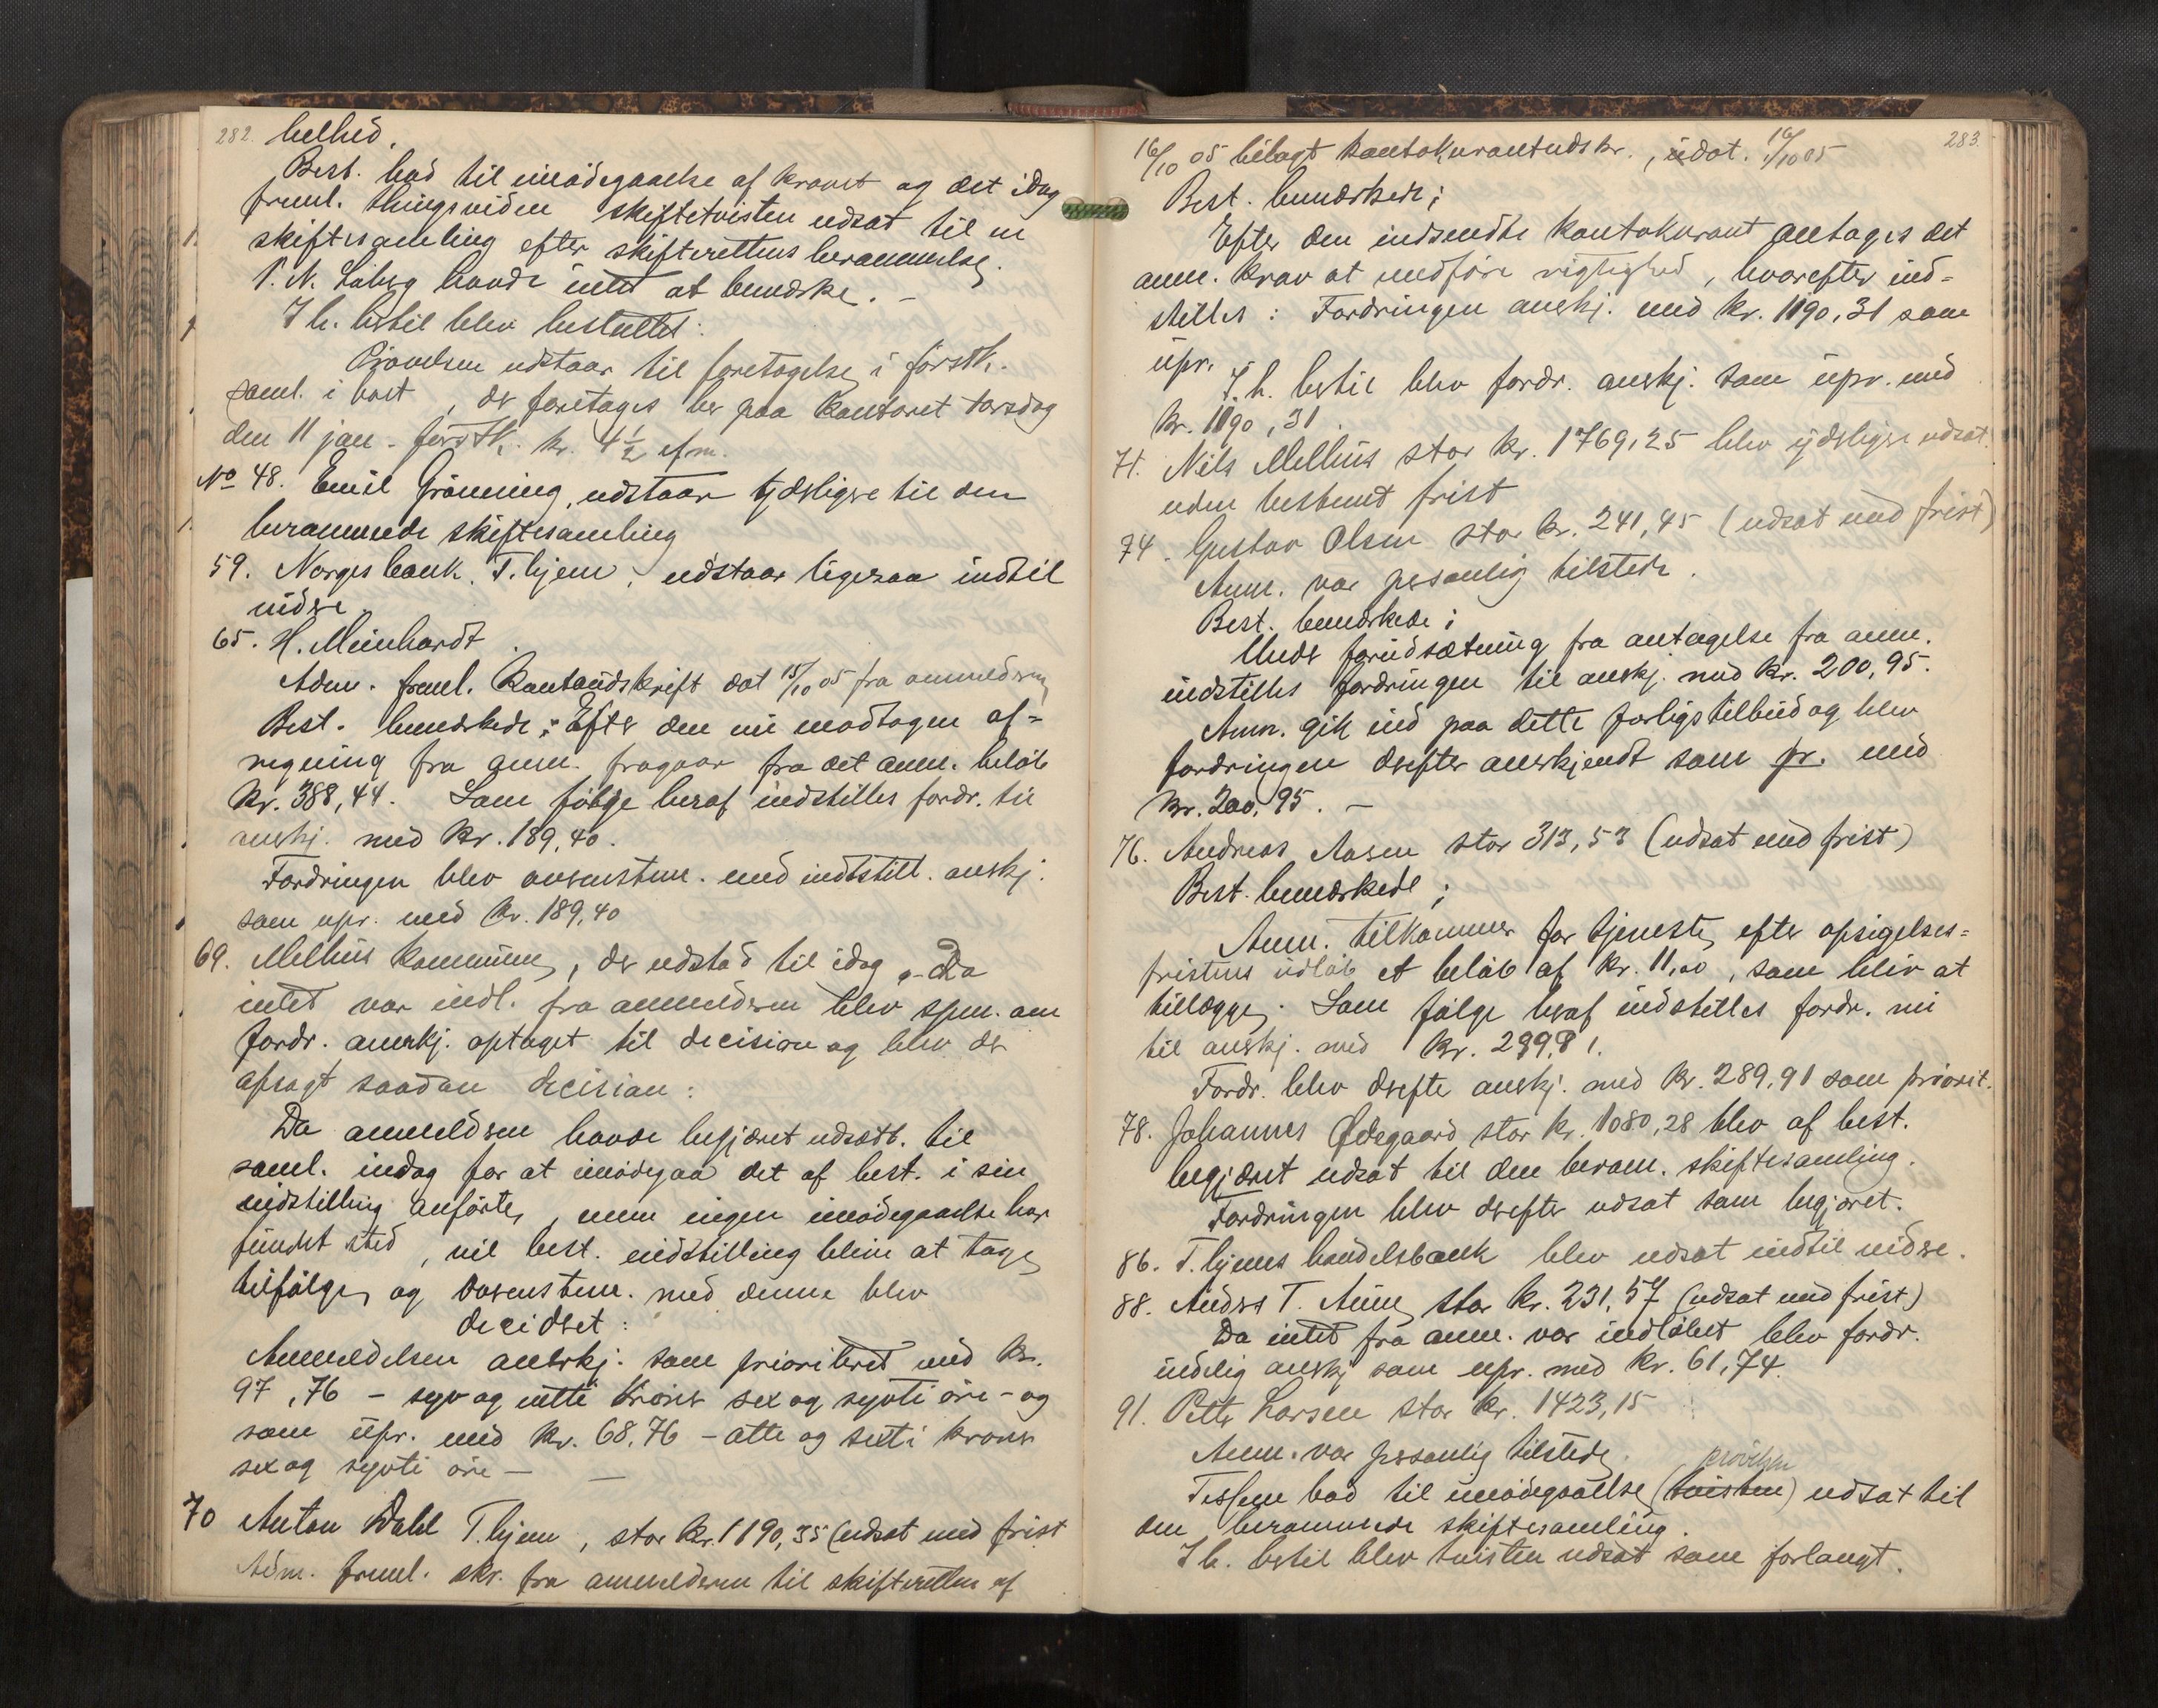 282. helhed.
Best. bad til imødegaaelse af kravet og det idag
freml. thingsvidne skiftetvisten udsat til en
skiftesamling efter skifterettens berammelse.
P. N. havde intet at bemærke. –
I h. hertil blev besluttet:
Prøvelsen udstaar til foretagelse i førstk.
saml. i boet, der foretages her paa kontoret torsdag
den 11 jan. førstk. kl. 4½ efm.
No 48. Emil Grønning, udstaar yderligere til den
berammede skiftesamling
59. Norges bank, T.hjem, udstaar ligesaa indtil
videre.
65. H. Meinhardt.
Adm. freml. Kontoudskrift dat 15/10 05 fra anmelderen
Best. bemærkede: Efter den nu modtagen af=
regning fra anm. fragaar fra det anm. beløb
kr. 388,44. Som følge heraf indstilles fordr. til
anerkj. med kr. 189,40.
Fordringen blev overenstem. med indstill. anerkj.
som upr. med kr. 189,40
69. Melhus kommune, der udstod til idag. – Da
intet var indl. fra anmelderen blev spm. om
fordr. anerkj. optaget til decision og blev der
afsagt saadan decision:
Da anmelderen havde begjæret udsætt. til
saml. idag for at imødegaa det af best. i sin
indstilling anførte, men ingen imødegaaelse har
fundet sted, vil best. indstilling blive at tage
tilfølge, og overenstem. med denne blev
decideret:
Anmeldelsen anerkj. som prioriteret med kr.
97,76 – syv og nitti kroner sex og sytti øre – og
som upr. med kr. 68.76 – otte og sexti kroner
sex og sytti øre – –
70 Anton Dahl T.hjem, stor kr. 1190,35 (udsat med frist
Adm. freml. skr. fra anmelderen til skifteretten af
283.
16/10 05 bilagt kontokurantudskr., udat. 16/10 05
Best. bemærkede:
Efter den indsendte kontokurant antages det
anm. krav at medføre rigtighed, hvorefter ind=
stilles: Fordringen anerkj. med kr. 1190,31 som
upr.
I h. hertil blev fordr. anerkj. som upr. med
kr. 1190,31.
71. Nils Melhus stor kr. 1769,25 blev yderligere udsat
uden bestemt frist
74. Gustav Olsen stor kr. 241,45 (udsat med frist)
Anm. var personlig tilstede.
Best. bemærkede:
Under forudsætning fra antagelse fra anm.
indstilles fordringen til anerkj. med kr. 200,95.
Anm. gik ind paa dette forligstilbud og blev
fordringen derefter anerkjendt som pr. med
kr. 200,95. –
76. Andreas Aasen stor 313,53 (udsat med frist)
Best. bemærkede:
Anm. tilkommer for tjeneste efter opsigelses=
fristens udløb et beløb af kr. 11,00, som bliv at
tillægge. Som følge heraf indstilles fordr. nu
til anerkj. med kr. 289,91.
Fordr. blev derefter anerkj. med kr. 289,91 som priorit.
78. Johannes Ødegaard stor kr. 1080,28 blev af best.
begjæret udsat til den beram. skiftesamling.
Fordringen blev derefter udsat som begjæret.
86. T.hjems handelsbank blev udsat indtil videre.
88. Anders T. Aune stor kr. 231,57 (udsat med frist)
Da intet fra anm. var indløbet blev fordr.
endelig anerkj som upr. med kr. 61,74.
91. Peter Larsen stor kr. 1423,15
Anm. var personlig tilstede.
prøvelsen
Tessem bad til imødegaaelse (tvisten) udsat til
den berammede skiftesamling.
I h. hertil blev tvisten udsat som forlangt.